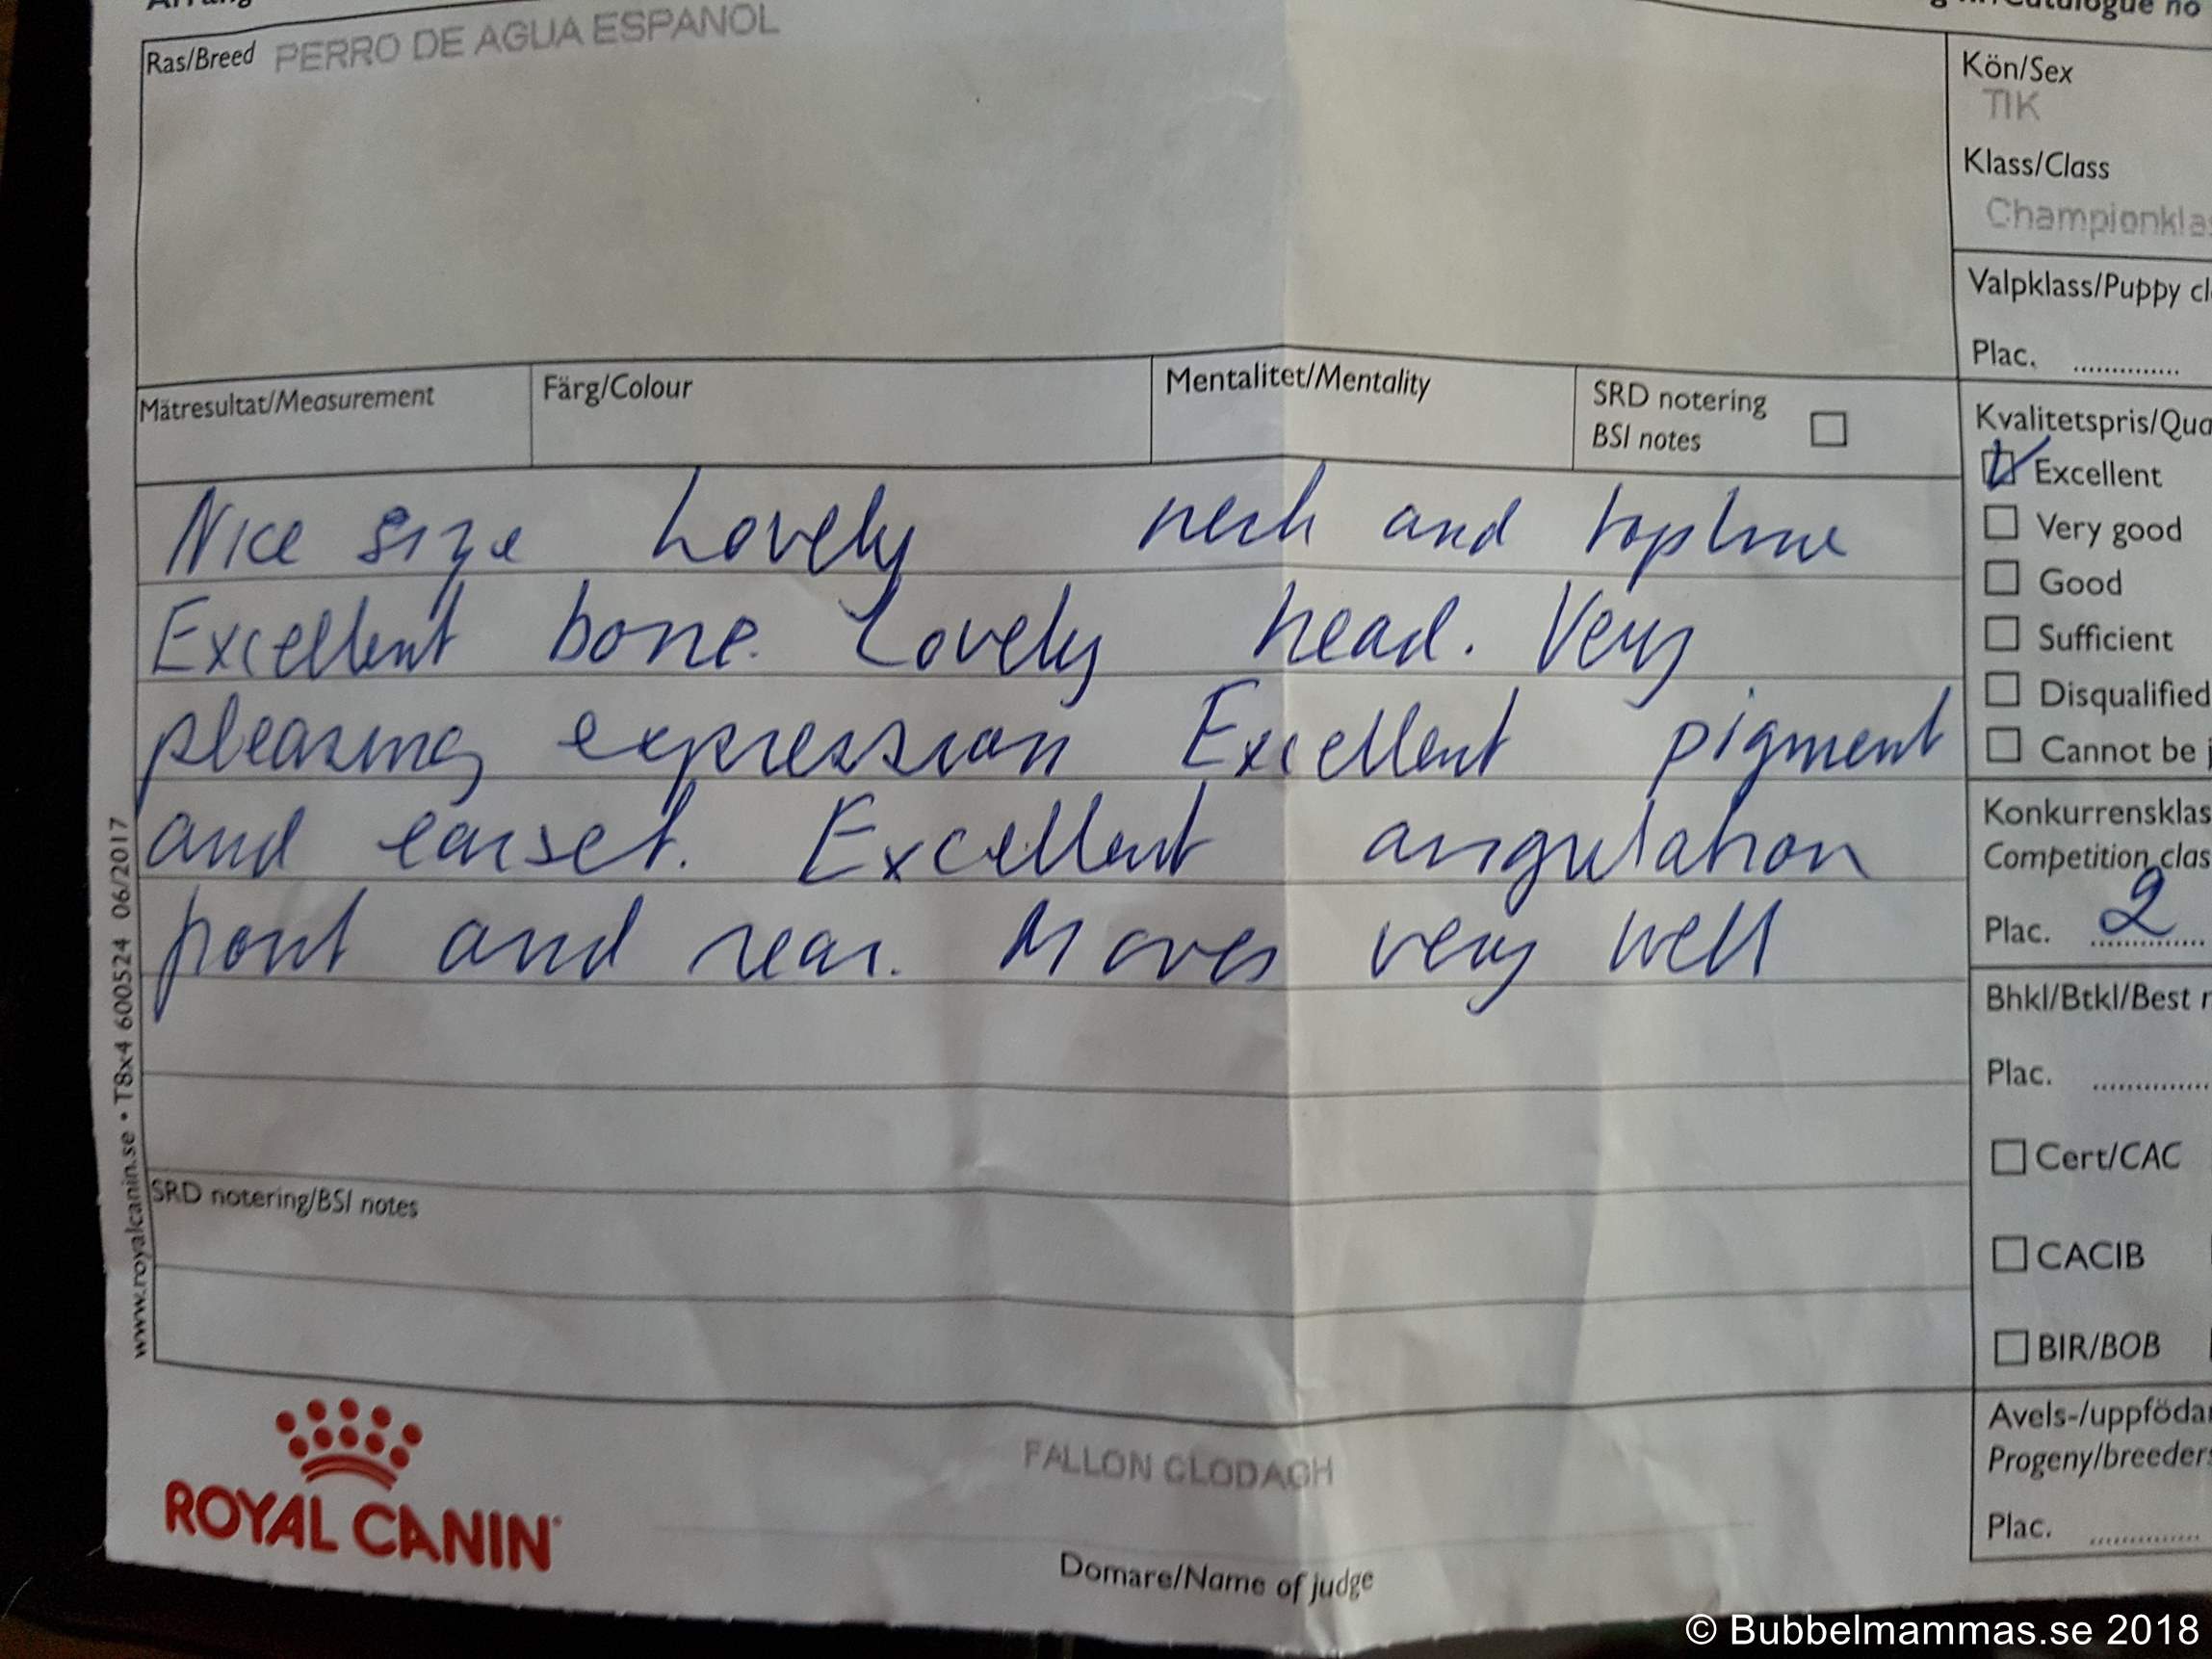 Ras/Breed PERRO DE AGUA ESPANOL
Kön/Sex
TIK
Klass/Class
Championklas
Valpklass/Puppy cl
Plac. ..............
Mätresultat/Measurement Färg/Colour Mentalitet/Mentality SRD notering
BSI notes
Kvalitetspris/Qua
Excellent
Very good
Good
Sufficient
Disqualified
Cannot be j
Nice size Lovely neck and topline
Excellent bone. Lovely head. Very
pleasing expression Excellent pigment
and earset. Excellent angulation
front and rear. Moves very well
Konkurrensklas
Competition clas
Plac. 2
Bhkl/Btkl/Best r
Plac. ..............
Cert/CAC
CACIB
BIR/BOB
SRD notering/BSI notes
Avels-/uppfödar
Progeny/breeders
Plac. ..............
www.royalcanin.se • T8x4 600524 06/2017
ROYAL CANIN
FALLON CLODAGH
Domare/Name of judge
© Bubbelmammas.se 2018